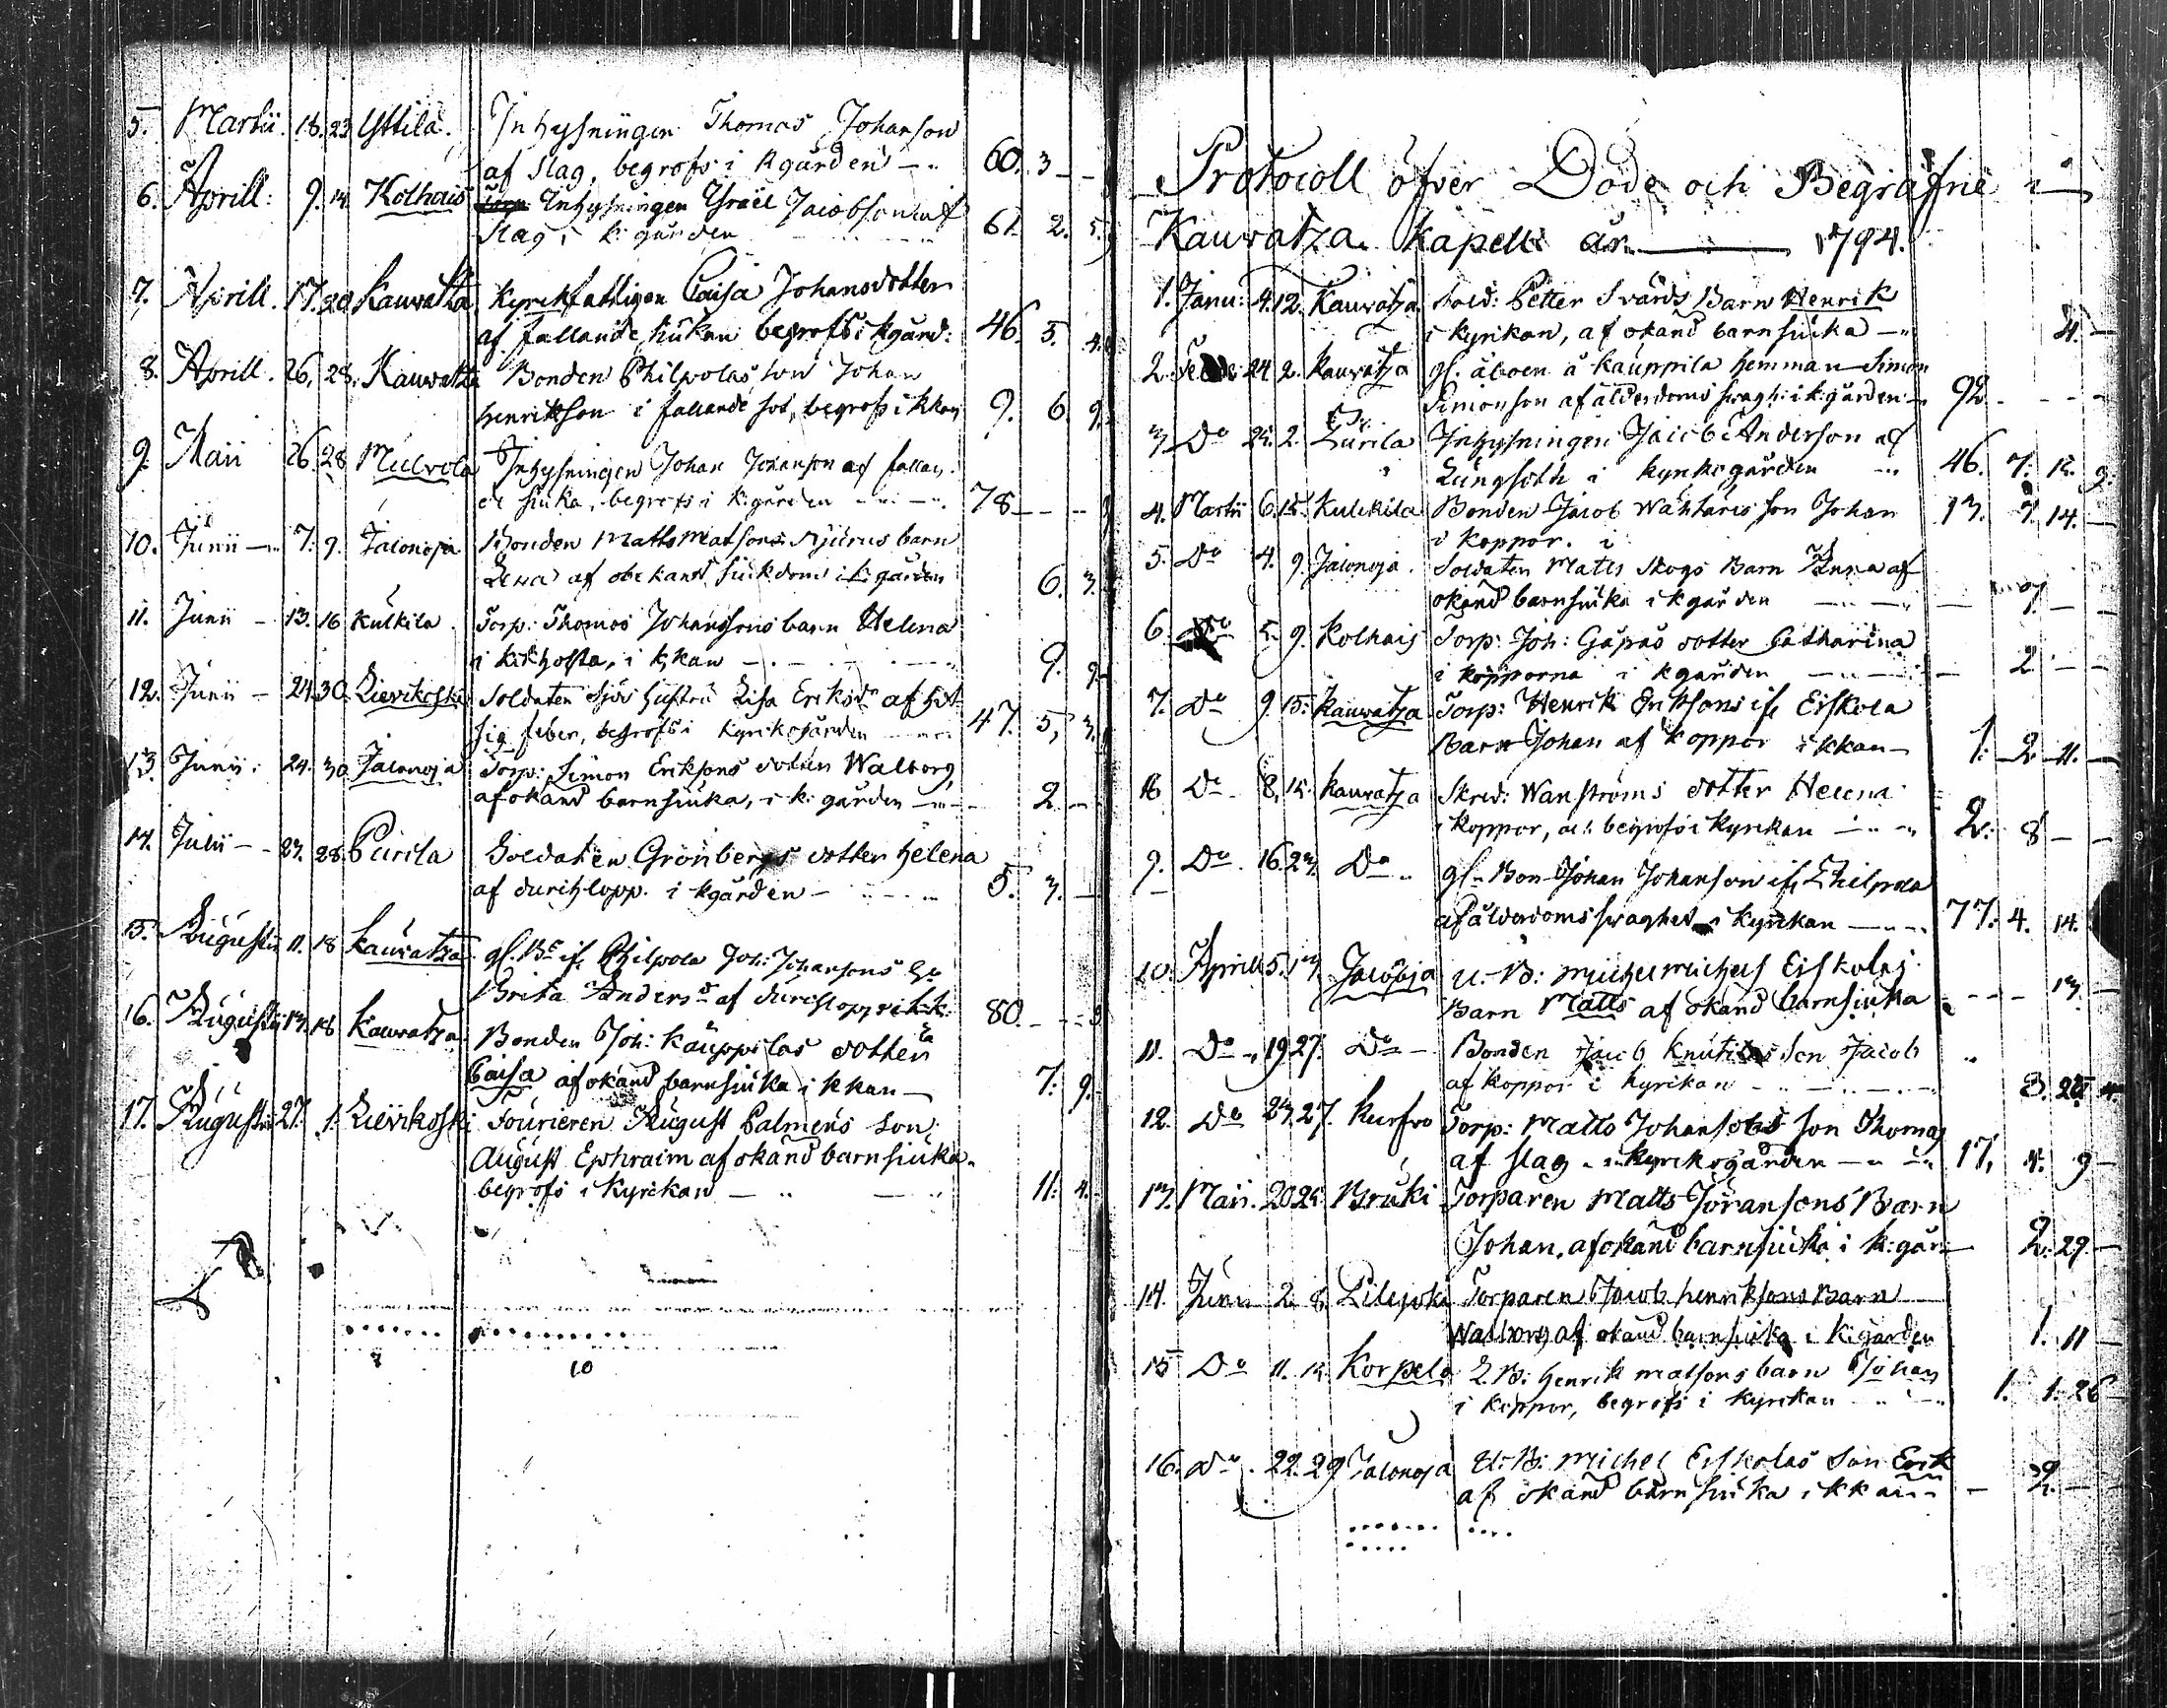 5. Martii. 18. 23 Yttilä. Inhysningen Thomas Johanson
af slag, begrofs i kgården 60. 3
6. Aprill: 9. 14 Kolhais Inhysningen Israel Jacobson af
slag i k: gården 61. 2. 5.
7. Aprill. 17. 20 Kauvatza kyrckfattigen Caisa Johansdotter
af fallande siukan begrofs i kgård: 46. 5. 4.
8. Aprill. 26. 28. Kauvatza Bonden Philpolas son Johan
henrikson i fallande sot, begrofs i kkan 9. 6. 9.
9. Maii 26. 28 Inhysningen Johan Johanson af fallan-
de siuka, begrofs i k: gården 78
10. Junii 7. 9. Jalonoja Bonden Matts Matsons barn
Lena af obekand siukdom i k: gården 6. 3.
11. Junii 13. 16 Kulkila. Torp: Thomas Johansons barn Helena
i kikhosta, i k,kan 9. 9.
12. Junii 24. 30. Lievikoski Soldaten Sjös hustru Lisa Eriksdr af hit-
sig feber, begrofs i kyrkogården 47. 5. 3.
13. Junii. 24. 30 Jalonoja Torp: Simon Eriksons dotter Walborg,
af okänd barnsiuka, i k: gården 2.
14. Julii 27. 28 Purila Soldaten Grönbergs dotter Helena
af durchlopp. i kgården 5. 3.
15. Augusti 11. 18 Kauvatza gl. Be if. Philpola Joh: Johansons
Brita Andersd af durchlopp i kk: 80.
16. Augusti 13. 18 Kauvatza Bonden Joh: Kauppilas dotter
Caisa af okänd barnsiuka i kkan 7. 9.
17. Augusti 27. 1. Lievikoski Fourieren August Palmens son
August Ephraim af okänd barnsiuka.
begrofs i Kyrckan 11. 4.
10
Protocoll öfver Döde och Begrafne i
Kauvatza Kapell år 1794.
1. Janu: 4. 12. Kauvatza Sold: Petter Svärds Barn Henrik
i kyrkan, af okänd barnsiuka 4.
2. 24 2. Kauvatza gl. åboen å Kauppila hemman Simon
Simonson af ålderdoms svagh: i k: gården 92
3. Do 24. 2. Purila Inhysningen Jacob Anderson af
Lungsoth i kyrkogården 46. 7. 12. 9.
4. Martii 6. 15. Kulckila Bonden Jacob Wähtäris son Johan
i koppor. i 13. 7. 14.
5. Do 4. 9. Jalonoja. Soldaten Matts Skogs Barn Anna af
okänd barnsiuka i k gården 7.
6. Do 5. 9. Kolhais Torp: Joh: Gåpås dotter Catharina
i kopporna i k gården 2
7. Do 9. 15. Kauvatza Torp: Henrik Eriksons if. Eiskola
Barn Johan af koppor i kkan 1. 2. 11.
8 Do 8. 15. Kauvatza Skred: Wanströms dotter Helena
i koppor, och begrofs i kyrckan 2. 8
9. Do 16. 23. Do gl. Bon Johan Johanson if, Philpola
af ålderdoms svaghet i kyrkan 77. 4. 14.
10. Aprill 5. 13. Jalonoja u. B: Michel Michels Eiskolas
Barn Matts af okänd barnsiuka 13.
11. Do 19. 27. Do Bonden Jacob Knutilas son Jacob
af koppor i kyrkan 3. 25. 4.
12. Do 24. 27. Torp: Matts Johansons son Thomas
af slag i kyrkogården 17. 4. 9
13. Maii. 20. 25. Bruki Torparen Matts Göransons Barn
Johan, af okänd barnsiuka i k: går: 2. 29.
14. Junii 2. 8. Torparen Jacob henriksons Barn
Walborg af okänd barnsiuka i k: gården 1. 11
15 Do 11. 15. Korpela L. B. Henrik matsons barn Johan
i koppor, begrofs i kyrkan 1. 1. 26
16. Do. 22. 29 Jalonoja U. B: Michel Eiskolas son Erik
af okänd barnsiuka i kkan 2.